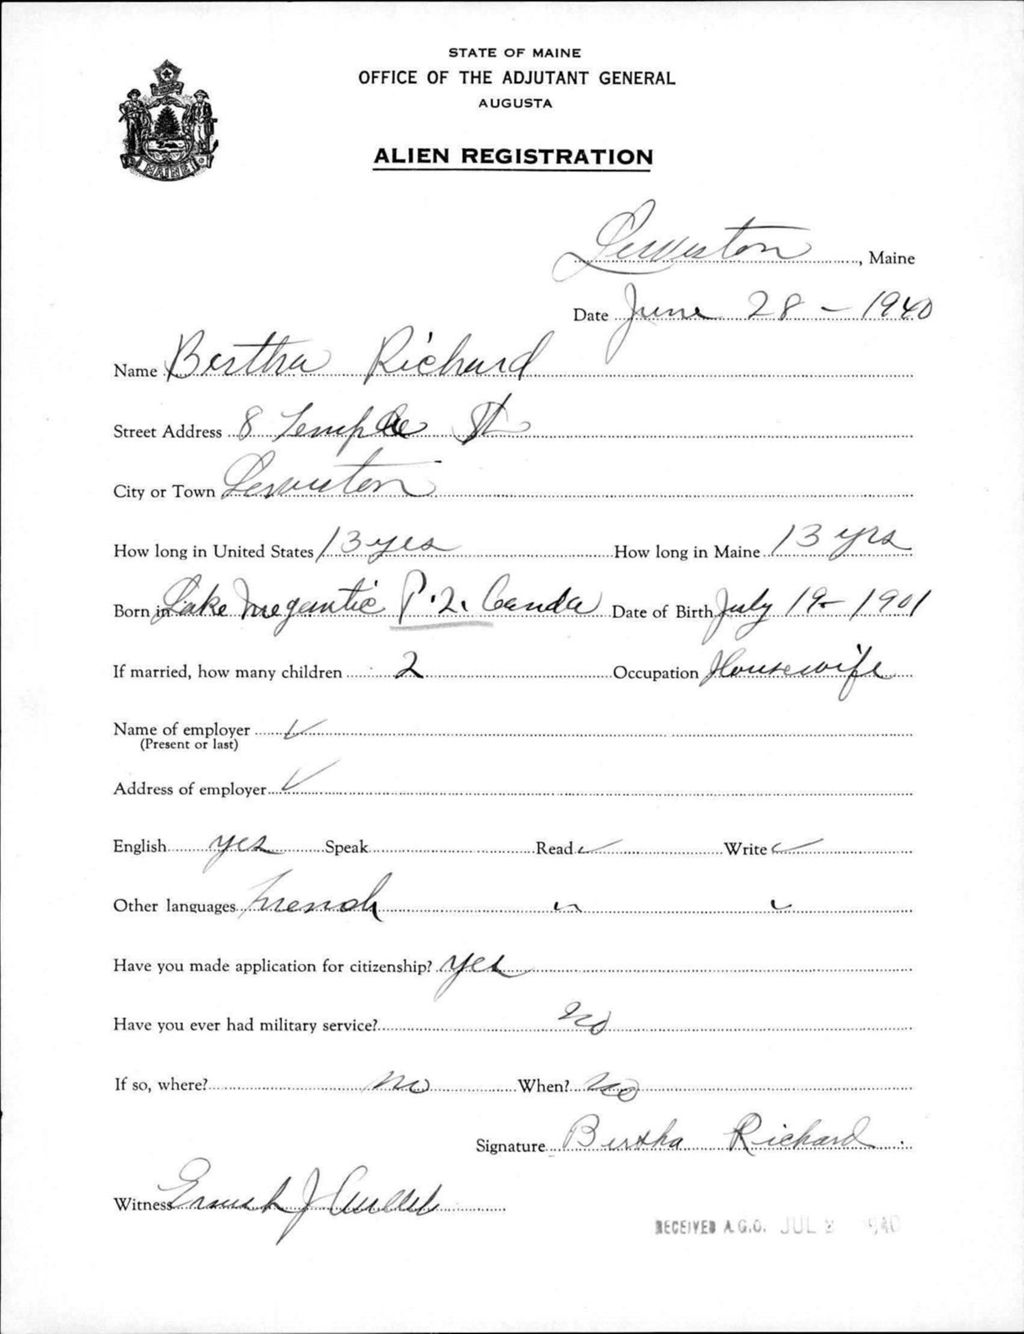 STATE OF MAINE
OFFICE OF THE ADJUTANT GENERAL
AUGUSTA
ALIEN REGISTRATION
MAINE
Lewiston, Maine
Date June 28 - 1940
Name Bertha Richard
Street Address 8 Temple St
City or Town Lewiston
How long in United States 13 yrs How long in Maine 13 yrs
Born in Lake Megantic P.Q. Canda Date of Birth July 19 - 1901
If married, how many children 2 Occupation Housewife
Name of employer ✓
(Present or last)
Address of employer ✓
English yes Speak Read ✓ Write ✓
Other languages French ✓ ✓
Have you made application for citizenship? Yes
Have you ever had military service? No
If so, where? no When? No
Signature Bertha Richard
Witness J
RECEIVED A.G.O. JUL 2 1940